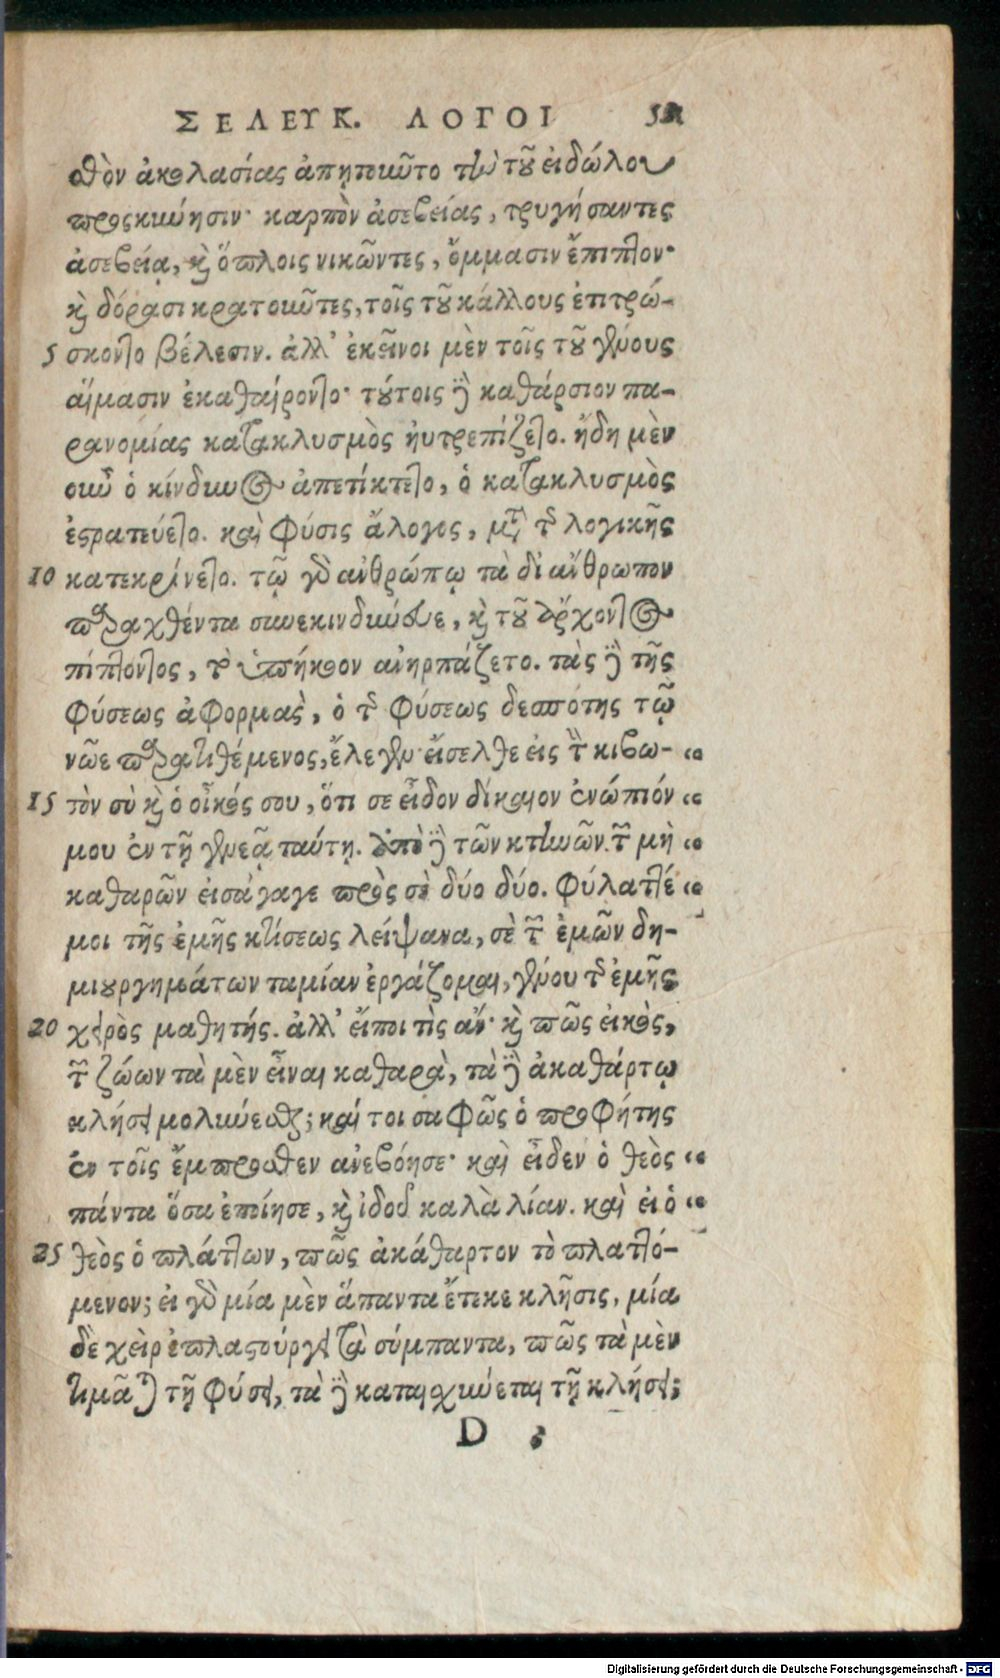 ΣΕΛΕΥΚ. ΛΟΓΟΙ
σθὸν ἀκολασίας ἀπῃτοῦντο τὴν τοῦ εἰδώλου
προσκύνησιν· καρπὸν ἀσεβείας, τρυγήσαντες
ἀσεβείᾳ, καὶ ὅπλοις νικῶντες, ὄμμασιν ἔπιπτον·
καὶ δόρασι κρατοῦντες, τοῖς τοῦ κάλλους ἐπιτρώ-
5 σκοντο βέλεσιν. ἀλλ' ἐκεῖνοι μὲν τοῖς τοῦ γένους
αἵμασιν ἐκαθαίροντο· τούτοις δὲ καθάρσιον πα-
ρανομίας κατακλυσμὸς ηὐτρεπίζετο. ἤδη μὲν
οὖν ὁ κίνδυνος ἀπετίκτετο, ὁ κατακλυσμὸς
ἐστρατεύετο. καὶ φύσις ἄλογος, μετὰ τῆς λογικῆς
10 κατεκρίνετο. τῷ γὰρ ἀνθρώπῳ τὰ δι' ἄνθρωπον
παραχθέντα συνεκινδύνευε, καὶ τοῦ ἄρχοντος
πίπτοντος, τὸ ὑπήκοον ἀνηρπάζετο. τὰς δὲ τῆς
φύσεως ἀφορμὰς, ὁ τῆς φύσεως δεσπότης τῷ
νῶε παρατιθέμενος, ἔλεγεν· εἴσελθε εἰς τὴν κιβω- “
15 τὸν σὺ καὶ ὁ οἶκός σου, ὅτι σε εἶδον δίκαιον ἐνώπιόν “
μου ἐν τῇ γενεᾷ ταύτῃ. ἀπὸ δὲ τῶν κτηνῶν τῶν μὴ “
καθαρῶν εἰσάγαγε πρὸς σὲ δύο δύο. φύλαττέ “
μοι τῆς ἐμῆς κτίσεως λείψανα, σὲ τῶν ἐμῶν δη-
μιουργημάτων ταμίαν ἐργάζομαι, γένου τῆς ἐμῆς
20 χειρὸς μαθητής. ἀλλ' εἴποι τὶς ἄν· καὶ πῶς εἰκὸς,
τῶν ζώων τὰ μὲν εἶναι καθαρὰ, τὰ δὲ ἀκαθάρτῳ
κλήσει μολύνεσθαι; καίτοι σαφῶς ὁ προφήτης
ἐν τοῖς ἔμπροσθεν ἀνεβόησε· καὶ εἶδεν ὁ θεὸς “
πάντα ὅσα ἐποίησε, καὶ ἰδοὺ καλὰ λίαν. καὶ εἰ ὁ “
25 θεὸς ὁ πλάττων, πῶς ἀκάθαρτον τὸ πλαττό-
μενον; εἰ γὰρ μία μὲν ἅπαντα ἔτικε κλῆσις, μία
δὲ χεὶρ ἐπλαστούργει τὰ σύμπαντα, πῶς τὰ μὲν
τιμᾶται τῇ φύσει, τὰ δὲ καταισχύνεται τῇ κλήσει;
D